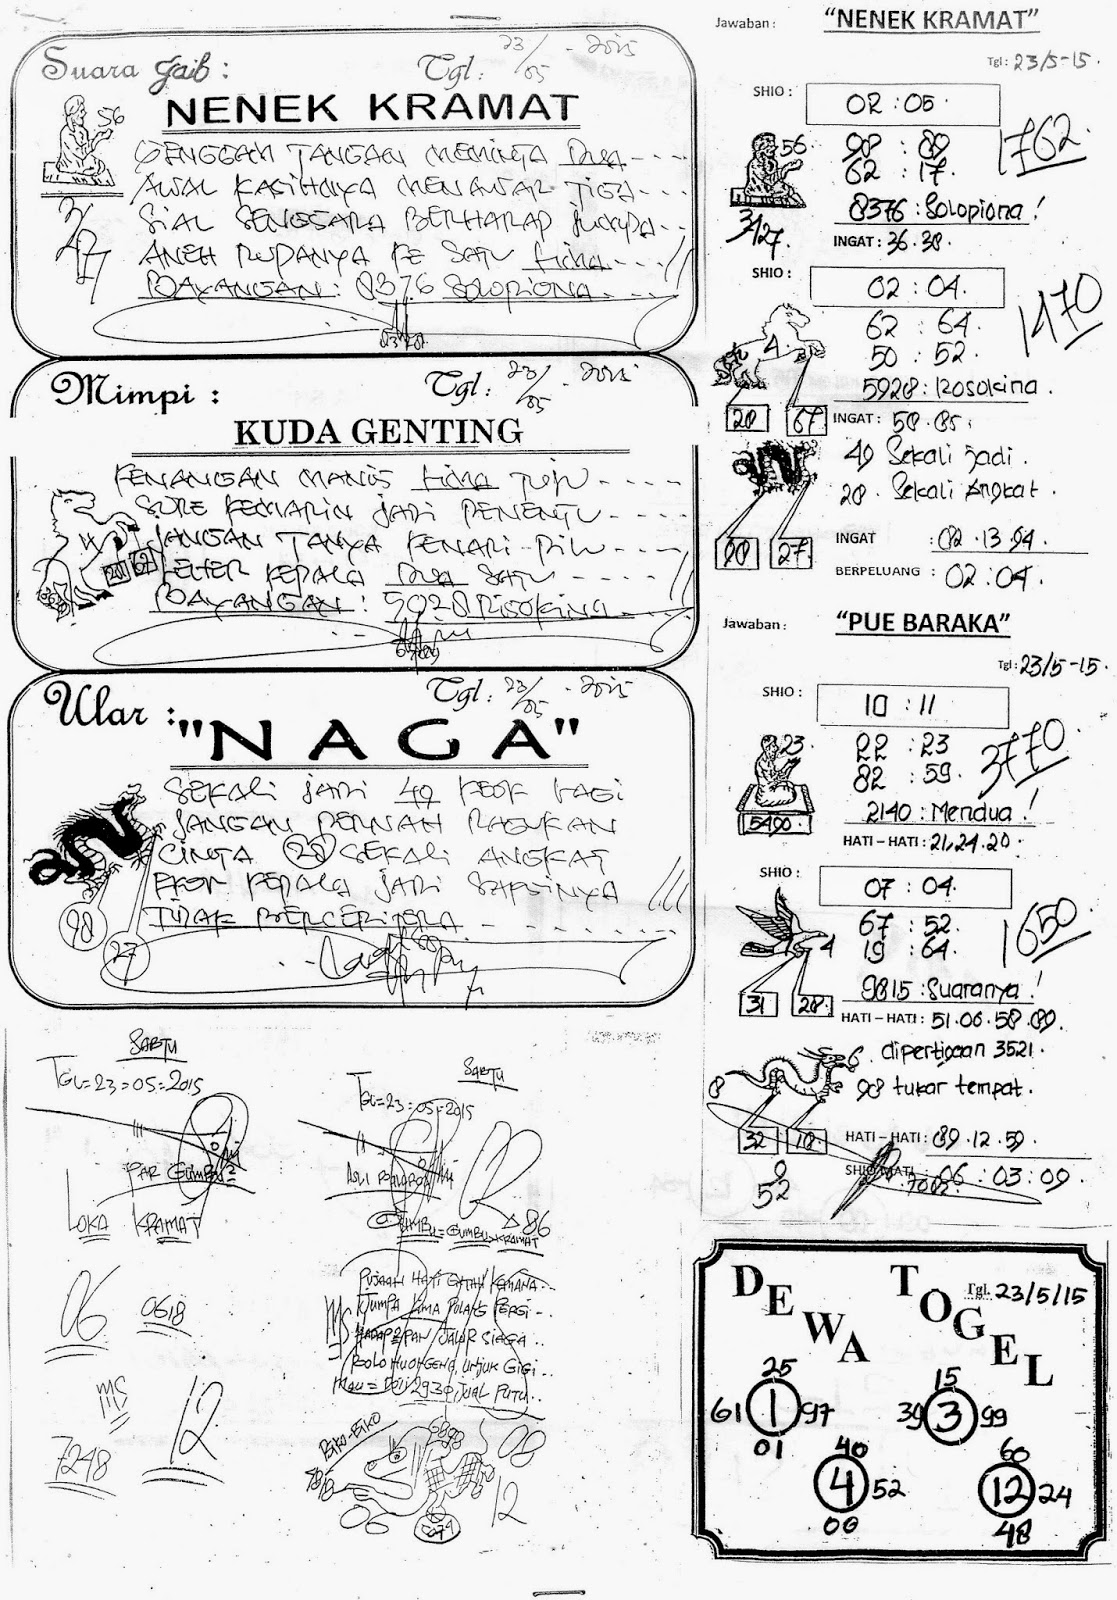 Suara Gaib :
Tgl : 23/05 - 2015
NENEK KRAMAT
56
GENGGAM TANGAN MEMINTA DUA ----
AWAL KASIHNYA MENAWAR TIGA ---
SIAL SENGSARA BERHARAP JUMPA --
ANEH RUPANYA KE SATU LIMA ---
BAYANGAN : 8376 SOLOPIONA
3/27
Mimpi :
Tgl : 23/05 - 2015
KUDA GENTING
KENANGAN MANIS LIMA TUJU ----
SORE KEMARIN JADI PENENTU ----
JANGAN TANYA KENARI PILU ----
LETER KEPALA DUA SATU ----
BAYANGAN : 5928 ROSOKINA
20 67
Ular :
Tgl : 23/05 - 2015
"NAGA"
SEKALI JADI 49 EKOR LAGI
JANGAN PERNAH RAGUKAN
CINTA 28 SEKALI ANGKAT
EKOR KEPALA JADI SAKSINYA
TIDAK BERCERITERA
98
27
SABTU
TGL=23=05=2015
PAR GUMBU2
LOKA KRAMAT
06
0618
MS
12
7248
SABTU
TGL=23=05=2015
ASLI
GUMBU=GUMBU=KRAMAT
86
PUJAAN HATI ENTAH KEMANA..
JUMPA LIMA PULANG PERGI..
MS
JALUR SIAGA..
UNJUK GIGI..
MAU = BELI 2930 JUAL PUTU..
08
06
12
Jawaban :
"NENEK KRAMAT"
Tgl : 23/5-15.
SHIO :
02 : 05.
56
98 : 89
62 : 17.
1762
8376 : Solopiona !
3/27.
INGAT : 36.38.
SHIO :
02 : 04.
62 : 64.
50 : 52.
1470
4
5928 : Rosokina.
20 67
INGAT : 58.85.
49 Sekali jadi.
28. Sekali Angkat.
98 27
INGAT : 82.13.94.
BERPELUANG : 02 : 04.
Jawaban :
"PUE BARAKA"
Tgl : 23/5-15.
SHIO :
10 : 11
23.
22 : 23
82 : 59.
3770
2140 : Mendua !
5490
HATI – HATI : 21.24.20.
SHIO :
07 : 04.
67 : 52.
19 : 64.
1650
4
9815 : Suaranya !
31 28
HATI – HATI : 51.06.58.89.
6. dipertigaan 3521.
8
98 tukar tempat.
32 18
HATI – HATI : 89.12.59.
SHIO MATI : 06 : 03 : 09.
52
DEWA TOGEL
Tgl. 23/5/15
25
61 1 97
01
15
39 3 99
40
4 52
00
60
12 24
48